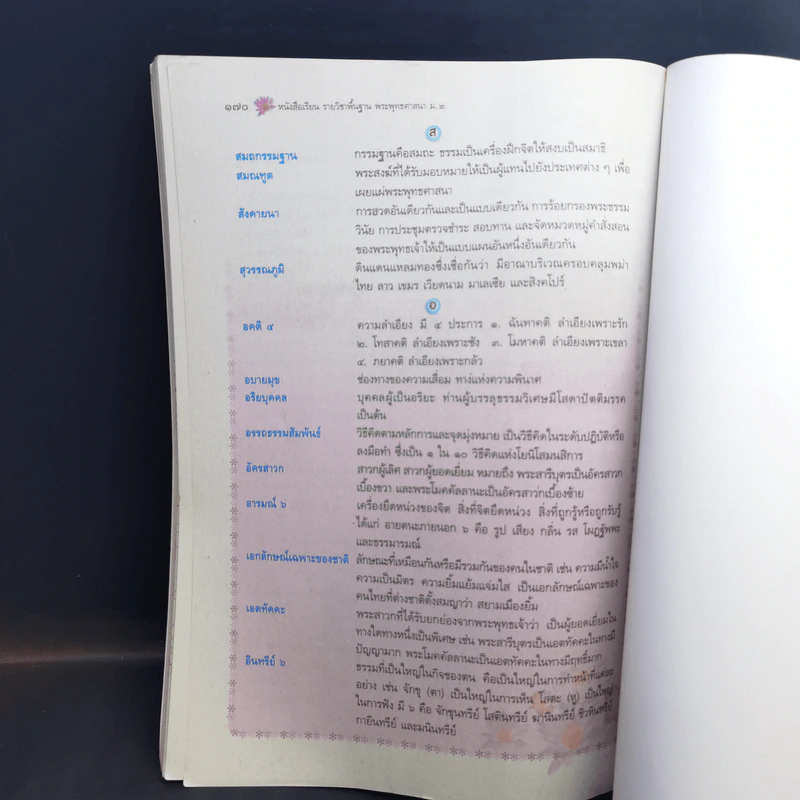 ๑๗๐ หนังสือเรียน รายวิชาพื้นฐาน พระพุทธศาสนา ม.๒
ส
สมถกรรมฐาน กรรมฐานคือสมถะ ธรรมเป็นเครื่องฝึกจิตให้สงบเป็นสมาธิ
สมณทูต พระสงฆ์ที่ได้รับมอบหมายให้เป็นผู้แทนไปยังประเทศต่าง ๆ เพื่อ
เผยแผ่พระพุทธศาสนา
สังคายนา การสวดอันเดียวกันและเป็นแบบเดียวกัน การร้อยกรองพระธรรม
วินัย การประชุมตรวจชำระ สอบทาน และจัดหมวดหมู่คำสั่งสอน
ของพระพุทธเจ้าให้เป็นแบบแผนอันหนึ่งอันเดียวกัน
สุวรรณภูมิ ดินแดนแหลมทองซึ่งเชื่อกันว่า มีอาณาบริเวณครอบคลุมพม่า
ไทย ลาว เขมร เวียดนาม มาเลเซีย และสิงคโปร์
อ
อคติ ๔ ความลำเอียง มี ๔ ประการ ๑. ฉันทาคติ ลำเอียงเพราะรัก
๒. โทสาคติ ลำเอียงเพราะชัง ๓. โมหาคติ ลำเอียงเพราะเขลา
๔. ภยาคติ ลำเอียงเพราะกลัว
อบายมุข ช่องทางของความเสื่อม ทางแห่งความพินาศ
อริยบุคคล บุคคลผู้เป็นอริยะ ท่านผู้บรรลุธรรมวิเศษมีโสดาปัตติมรรค
เป็นต้น
อรรถธรรมสัมพันธ์ วิธีคิดตามหลักการและจุดมุ่งหมาย เป็นวิธีคิดในระดับปฏิบัติหรือ
ลงมือทำ ซึ่งเป็น ๑ ใน ๑๐ วิธีคิดแห่งโยนิโสมนสิการ
อัครสาวก สาวกผู้เลิศ สาวกผู้ยอดเยี่ยม หมายถึง พระสารีบุตรเป็นอัครสาวก
เบื้องขวา และพระโมคคัลลานะเป็นอัครสาวกเบื้องซ้าย
อารมณ์ ๖ เครื่องยึดหน่วงของจิต สิ่งที่จิตยึดหน่วง สิ่งที่ถูกรู้หรือถูกรับรู้
ได้แก่ อายตนะภายนอก ๖ คือ รูป เสียง กลิ่น รส โผฏฐัพพะ
และธรรมารมณ์
เอกลักษณ์เฉพาะของชาติ ลักษณะที่เหมือนกันหรือมีรวมกันของคนในชาติ เช่น ความมีน้ำใจ
ความเป็นมิตร ความยิ้มแย้มแจ่มใส เป็นเอกลักษณ์เฉพาะของ
คนไทยที่ต่างชาติตั้งสมญาว่า สยามเมืองยิ้ม
เอตทัคคะ พระสาวกที่ได้รับยกย่องจากพระพุทธเจ้าว่า เป็นผู้ยอดเยี่ยมใน
ทางใดทางหนึ่งเป็นพิเศษ เช่น พระสารีบุตรเป็นเอตทัคคะในทางมี
ปัญญามาก พระโมคคัลลานะเป็นเอตทัคคะในทางมีฤทธิ์มาก
อินทรีย์ ๖ ธรรมที่เป็นใหญ่ในกิจของตน คือเป็นใหญ่ในการทำหน้าที่แต่ละ
อย่าง เช่น จักขุ (ตา) เป็นใหญ่ในการเห็น โสตะ (หู) เป็นใหญ่
ในการฟัง มี ๖ คือ จักขุนทรีย์ โสตินทรีย์ ฆานินทรีย์ ชิวหินทรีย์
กายินทรีย์ และมนินทรีย์